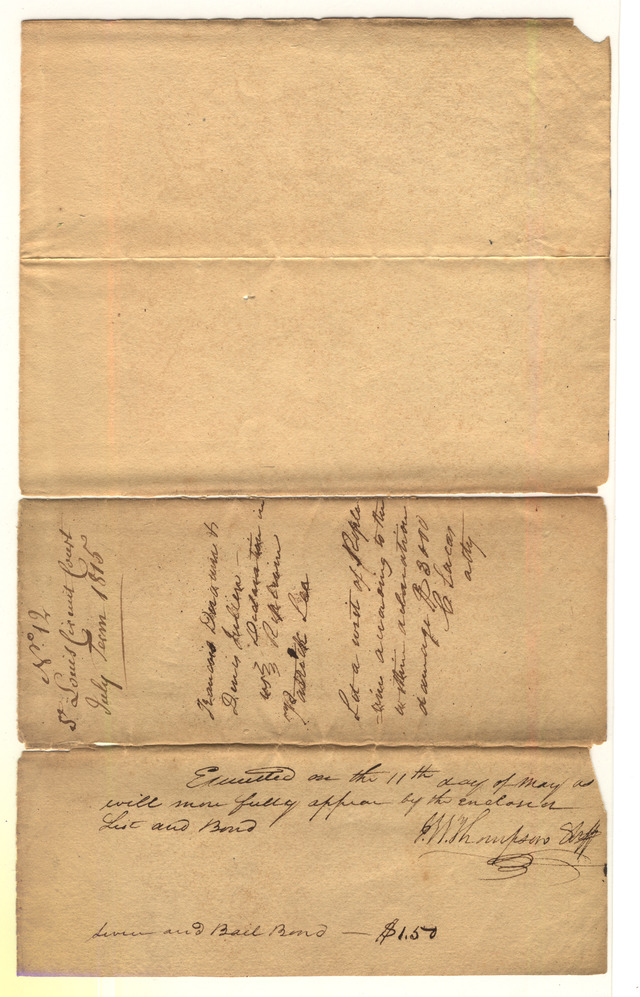 No. 12
St Louis Circuit Court
July Term 1815
Francois
Denis Julien
vs } Declaration in
Replevin
Patrick Lee
Let a writ of Reple
-vin according to the
within declaration
damage $ 3000
C Lucas
atty
Executed on the 11th day of May as
will more fully appear by the enclosed
List and Bond
J. W. Thompson Shff
and Bail Bond — $1.50